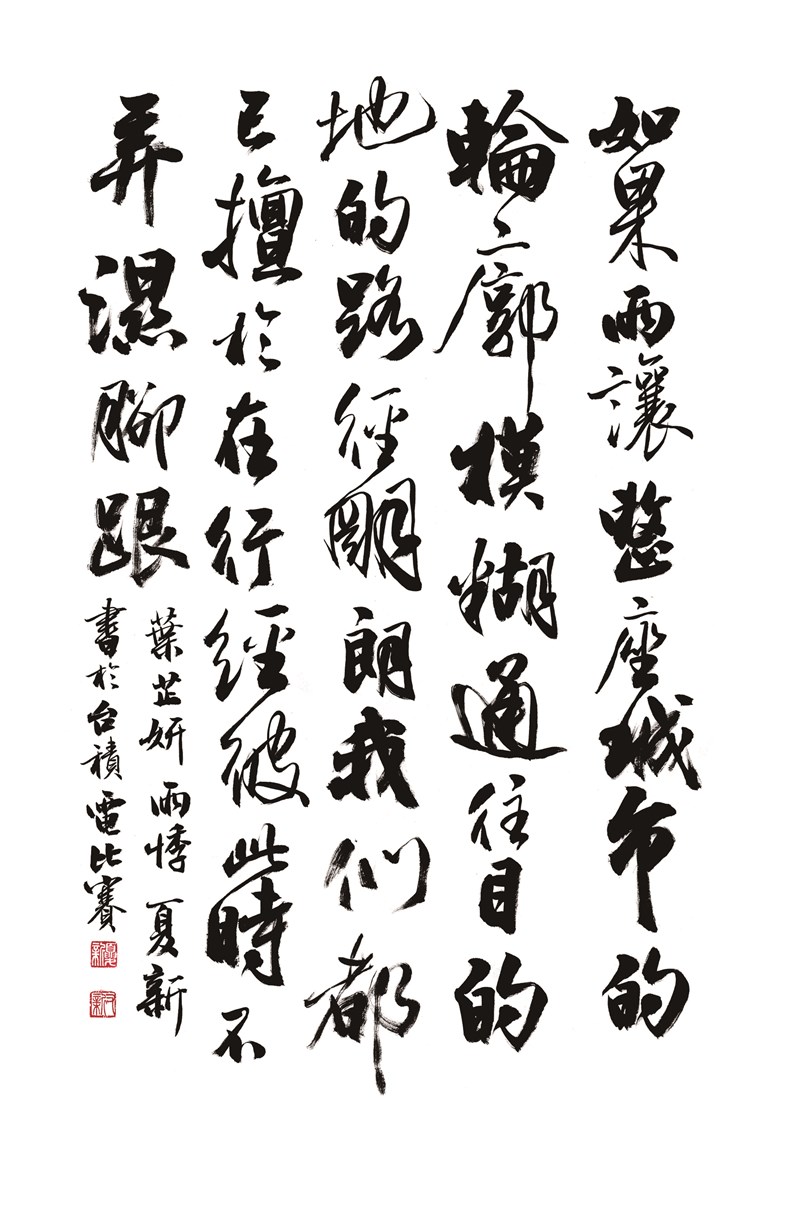 如果雨讓整座城市的
輪廓模糊通往目的
地的路徑剛朗我們都
已擅於在行經彼此時不
弄濕腳跟
葉芷妍 雨悸 夏新
書於台積電比賽
夏新